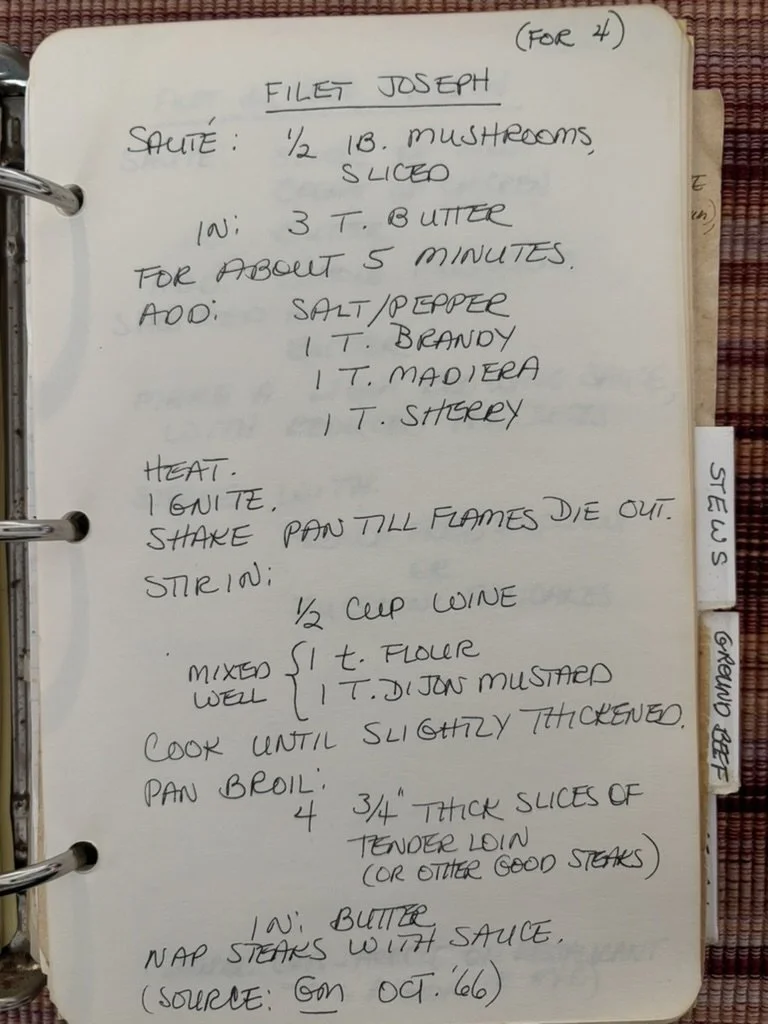 (FOR 4)
FILET JOSEPH
SAUTÉ: 1/2 lB. MUSHROOMS,
SLICED
IN: 3 T. BUTTER
FOR ABOUT 5 MINUTES.
ADD: SALT/PEPPER
1 T. BRANDY
1 T. MADIERA
1 T. SHERRY
HEAT.
IGNITE.
SHAKE PAN TILL FLAMES DIE OUT.
STIR IN:
1/2 CUP WINE
MIXED WELL { 1 t. FLOUR
1 T. DIJON MUSTARD
COOK UNTIL SLIGHTLY THICKENED.
PAN BROIL:
4 3/4" THICK SLICES OF
TENDER LOIN
(OR OTHER GOOD STEAKS)
IN: BUTTER
NAP STEAKS WITH SAUCE.
(SOURCE: Gm OCT. '66)
STEWS
GROUND BEEF